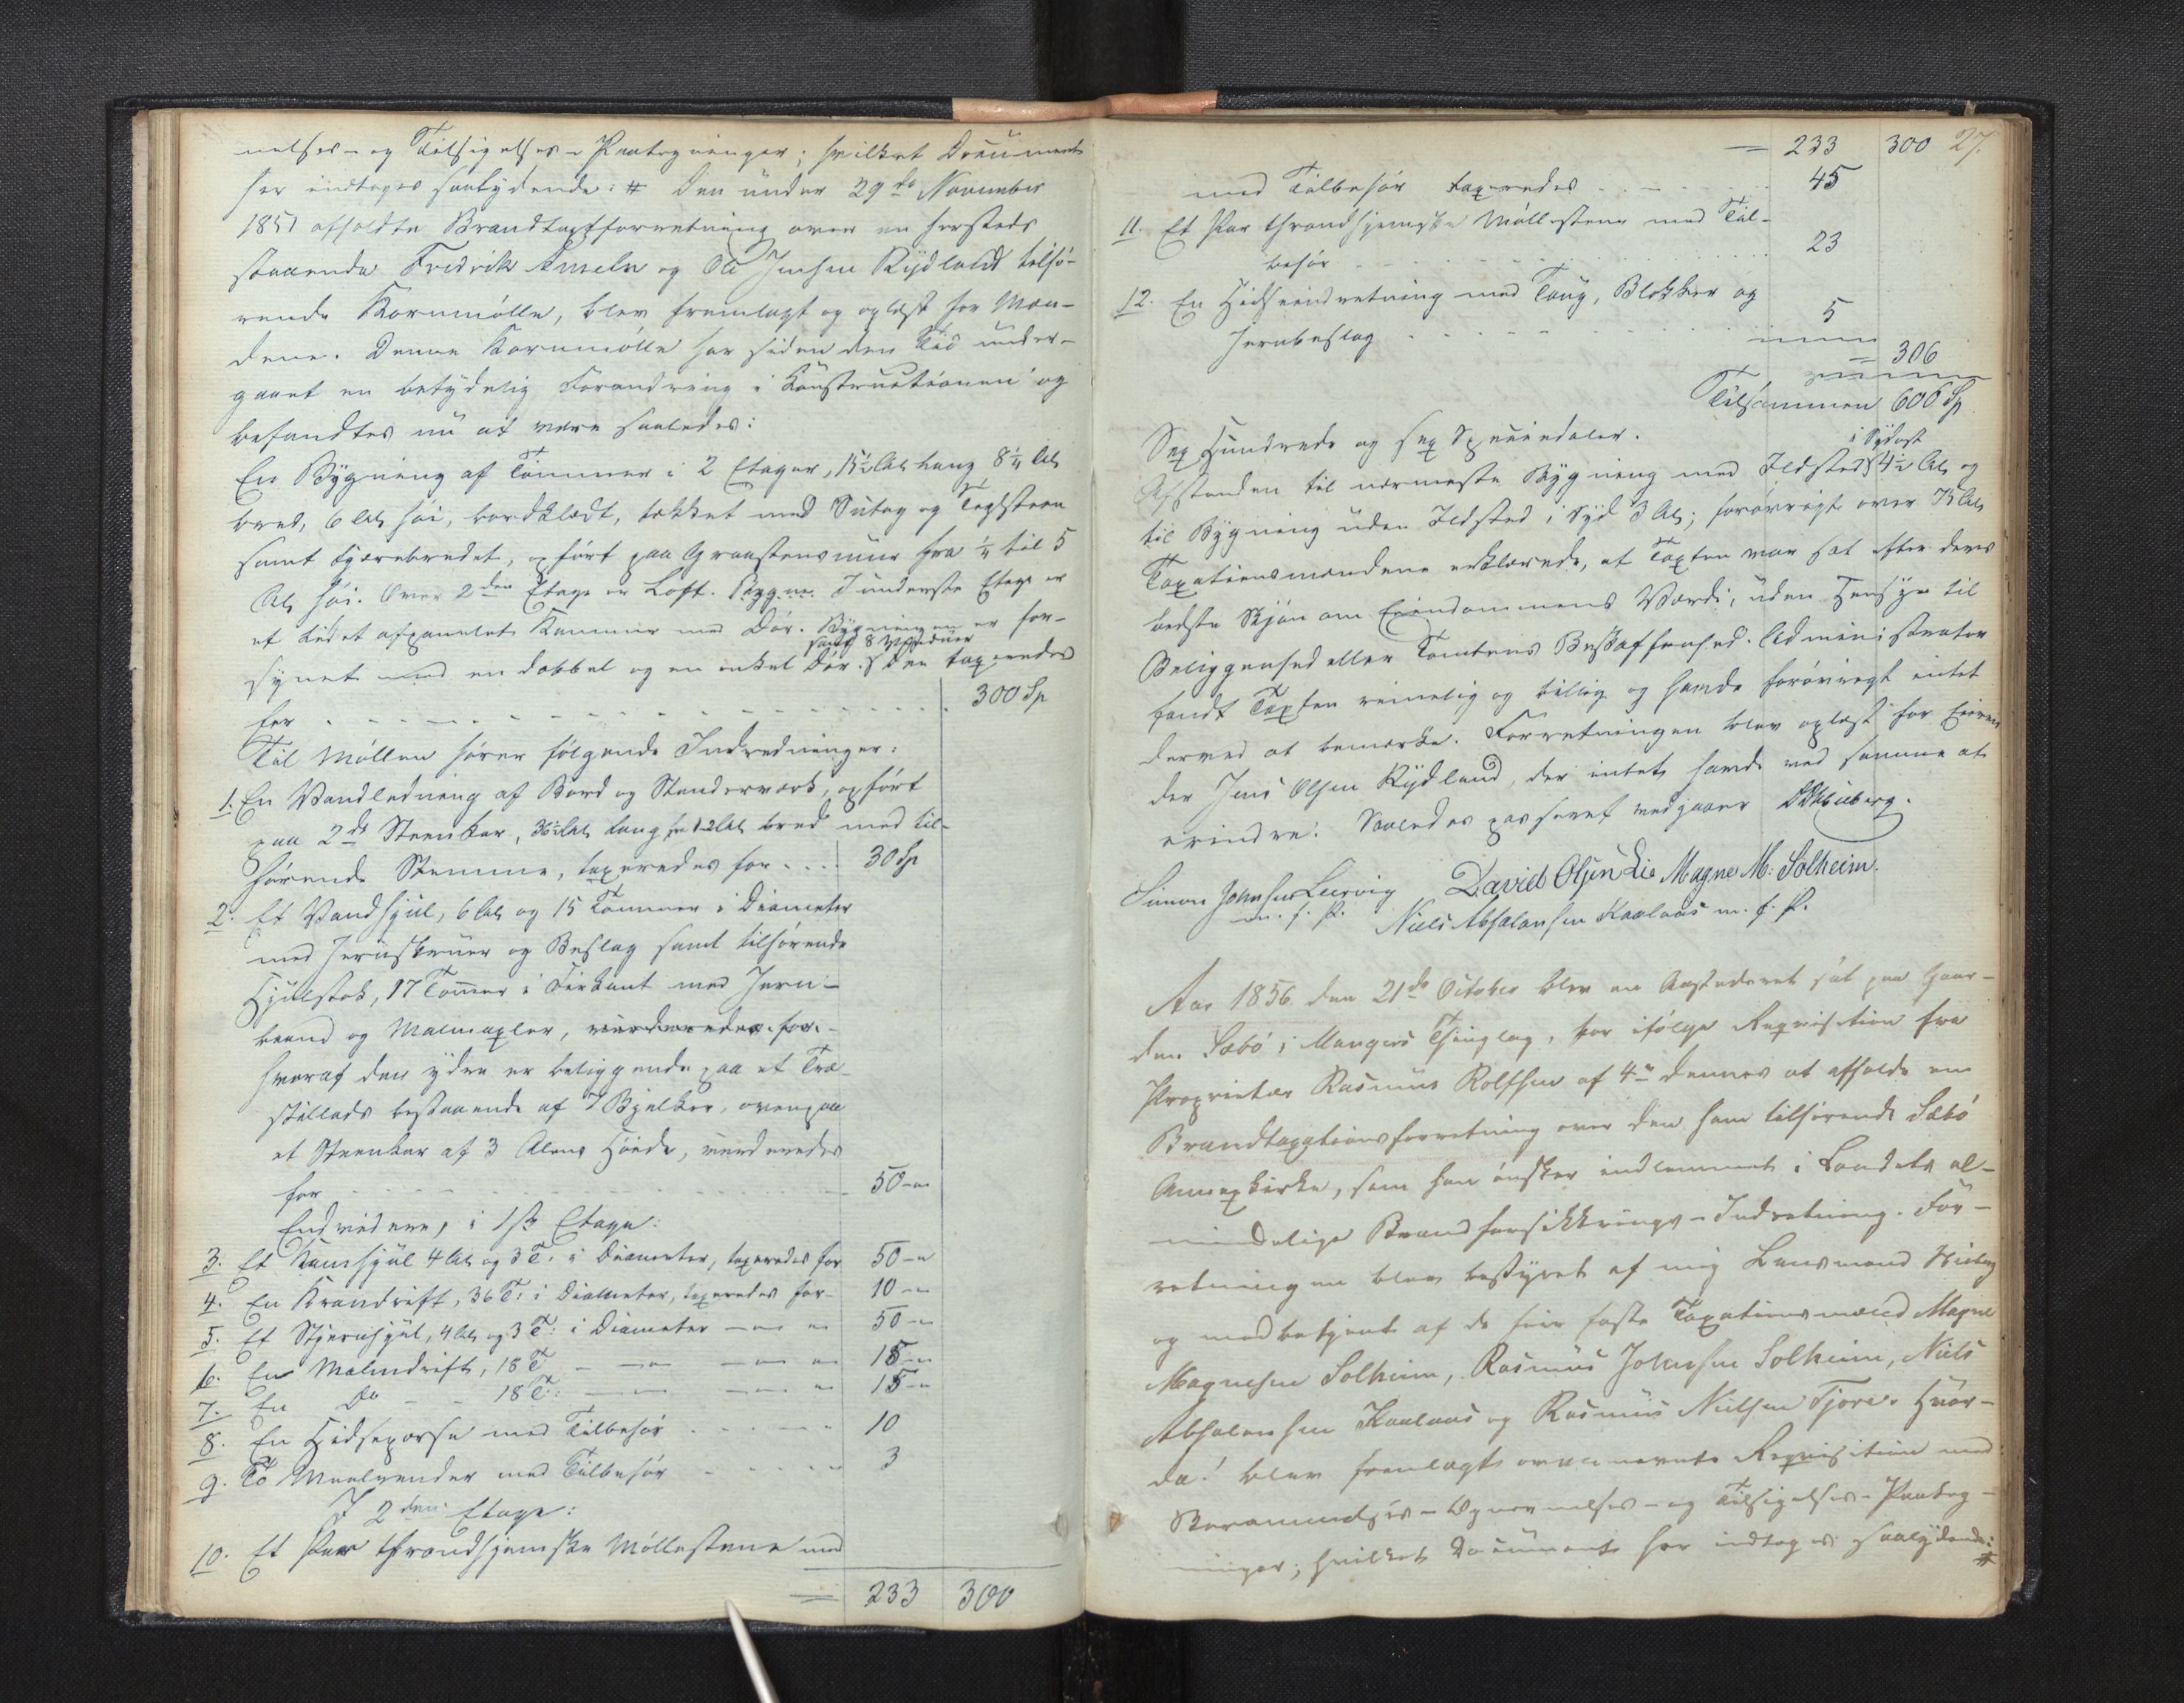 nelses- og Tilsigelses-Paategninger; hvilket Document
her indtages saalydende: # Den under 29de November
1851 afholdte Brandtaxtforretning over en hersteds
staaende Fredrik Ameln og Ole Jensen Rydland tilhø-
rende Kornmølle, blev fremlagt og oplæst for Mæn-
dene. Denne Kornmølle har siden den Tid under-
gaaet en betydelig Forandring i Constructionen og
befandtes nu at være saaledes:
En Bygning af Tømmer i 2 Etager, 15½ Al. lang 8¼ Al.
bred, 6 Al. høi, bordklædt, tækket med Sutag og Teglsteen
samt tjærebredet, opført paa Graasteensmuur fra ¼ til 5
Al. høi. Over 2den Etage er Loft. I underste Etage er
et lidet afpanelet Kammer med Dør. Bygningen er for-
synet med en dobbel og en enkel Dør samt 8 Vinduer. Den taxeredes
for . . . 300 Sp
Til Møllen hører følgende Indredninger:
1. En Vandledning af Bord og Stenderværk, opført
paa 2de Steenkar, 36½ Al. lang fra 1-2 Al. bred med til-
hørende Stemme, taxeredes for . . . 30 Sp
2. Et Vandhjul, 6 Al. og 15 Tommer i Diameter
med Jernskruer og Beslag samt tilhørende
Hjulstok, 17 Tommer i Firkant med Jern-
baand og Malmaxler, vurderedes for
hvoraf den ydre er beliggende paa et Træ-
stillads bestaaende af 7 Bjelker, ovenpaa
et Steenkar af 3 Alens Høide, vurderedes
for . . . 50 -"-
Endvidere, i 1ste Etage:
3. Et Kamhjul 4 Al. og 3 T. i Diameter, taxeredes for 50 -"
4. En Krandrift, 36 T. i Diameter, taxeredes for - 10 -"
5. Et Stjernhjul, 4 Al. og 3 T. i Diameter -"- " 50 -"
6. En Malmdrift, 18 T. - -"- -"- " 15 -"
7. En Do - 18 T.: -"- -"- " 15 -"
8. En Hidseparse med Tilbehør . . . 10
9. To Meelrender med Tilbehør . . . 3
I 2den Etage:
10. Et Par throndhjemske Møllestene med
= 233 300
= 233 300 27.
med Tilbehør taxeredes . . . 45
11. Et Par throndhjemske Møllestene med Til-
behør . . . 23
12. En Hidseindretning med Toug, Blokker og
Jernbeslag . . . 5
= 306
Tilsammen 606 Sp
Sex Hundrede og sex Speciedaler.
Afstanden til nærmeste Bygning med Ildsted i Sydost 4½ Al. og
til Bygning uden Ildsted i Syd 3 Al; forøvrigt over 75 Al.
Taxationsmændene erklærede, at Taxten var sat efter deres
bedste Skjøn om Eiendommens Værdi, uden Hensyn til
Beliggenhed eller Tomtens Beskaffenhed. Administrator
fandt Taxten rimelig og billig og havde forøvrigt intet
derved at bemærke. Forretningen blev oplæst for Eieren
der Jens Olsen Rydland, der intet havde ved samme at
erindre. Saaledes passeret vedgaaer
Simon Johnsen Leervig David Olsen Lie Magne M: Solheim.
m. f. P. Niels Absalonsen Kaalaas m. f. P.
Aar 1856 den 21de October blev en Aastedsret sat paa Gaar-
den Sæbø i Mangers Thinglag, for ifølge Requisition fra
Proprietær Rasmus Rolfsen af 4de dennes at afholde en
Brandtaxationsforretning over den ham tilhørende Sæbø
Annexkirke, som han ønsker indlemmet i Landets al-
mindelige Brandforsikkrings-Indretning. For-
retningen blev bestyret af mig Lensmand
og medbetjent af de fire faste Taxationsmænd Magne
Magnesen Solheim, Rasmus Johnsen Solheim, Niels
Absalonsen Kaalaas og Rasmus Nielsen Fjore. Hvor-
da! blev fremlagt ovennævnte Requisition med
Berammelses-Opnevnelses- og Tilsigelses-Paateg-
ninger; hvilket Document her indtages saalydende: #